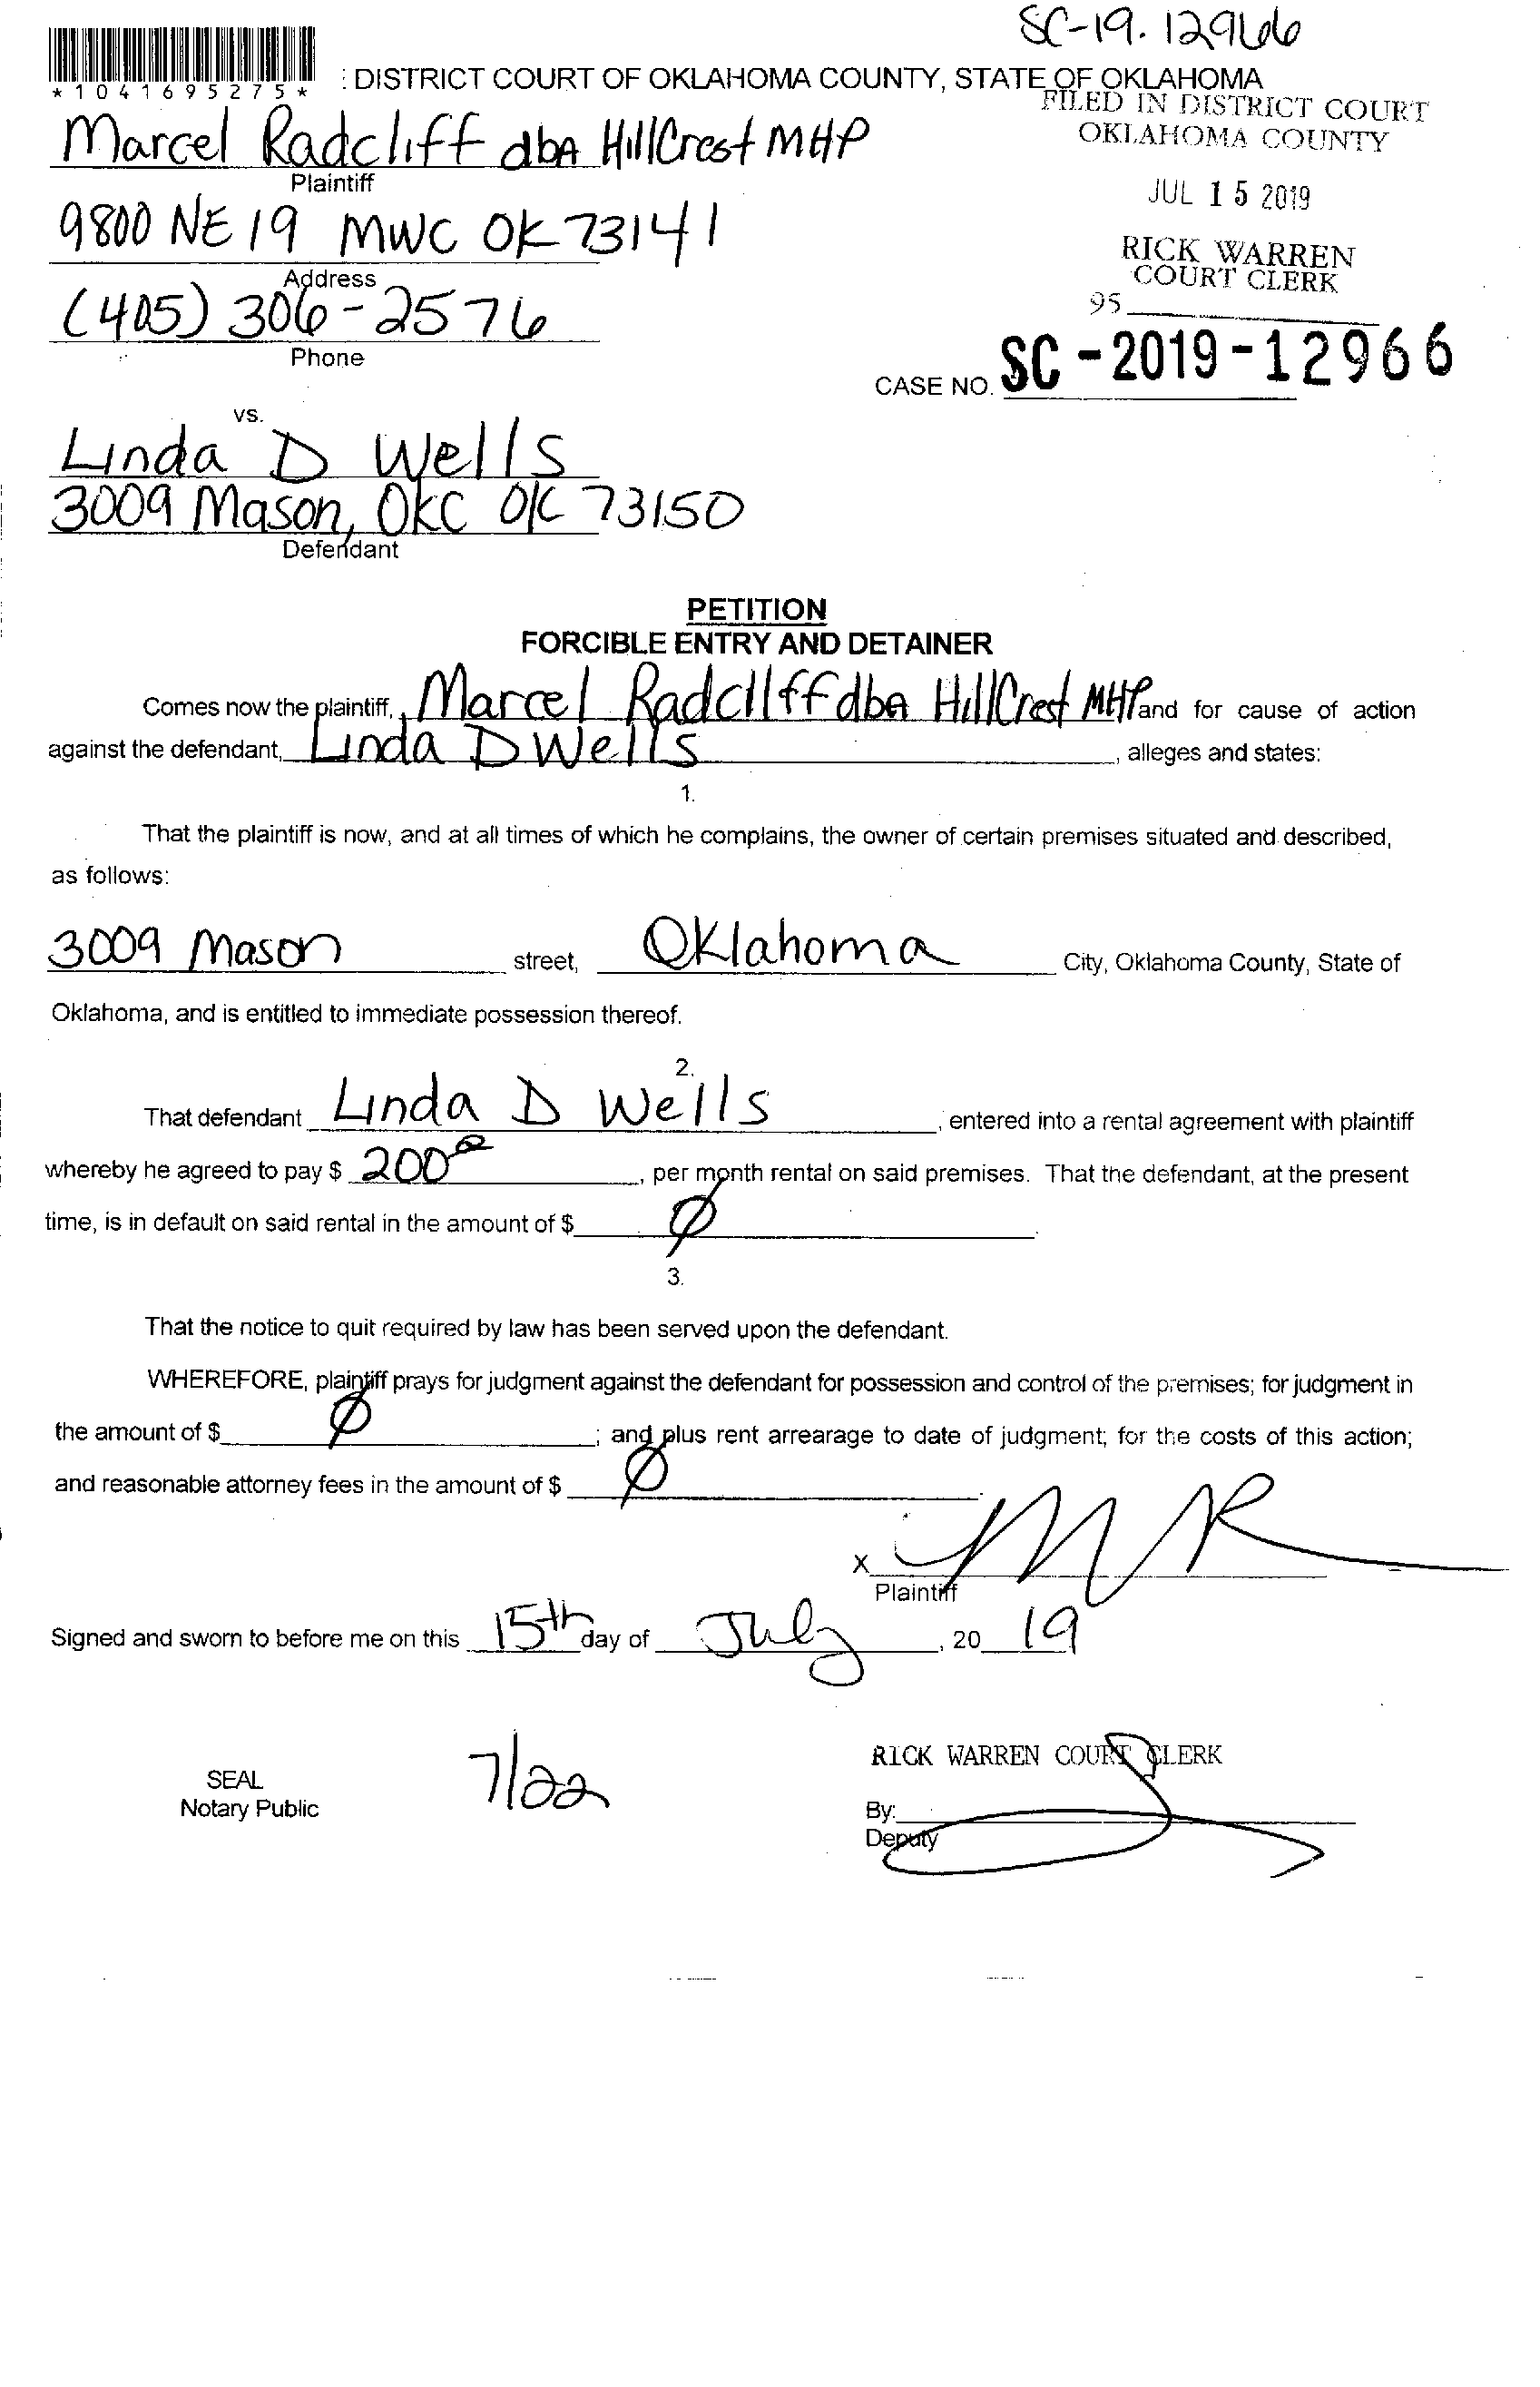 SC-19-12966
*1041695275*
: DISTRICT COURT OF OKLAHOMA COUNTY, STATE OF OKLAHOMA
FILED IN DISTRICT COURT
OKLAHOMA COUNTY
Marcel Radcliff dba HillCrest MHP
Plaintiff
JUL 15 2019
9800 NE 19 MWC OK 73141
Address
RICK WARREN
COURT CLERK
95
(405) 306-2576
Phone
CASE NO. SC-2019-12966
vs.
Linda D Wells
3009 Mason, OKC OK 73150
Defendant
PETITION
FORCIBLE ENTRY AND DETAINER
Comes now the plaintiff, Marcel Radcliff dba HillCrest MHP and for cause of action
against the defendant, Linda D Wells, alleges and states:
1.
That the plaintiff is now, and at all times of which he complains, the owner of certain premises situated and described,
as follows:
3009 Mason street, Oklahoma City, Oklahoma County, State of
Oklahoma, and is entitled to immediate possession thereof.
2.
That defendant Linda D Wells, entered into a rental agreement with plaintiff
whereby he agreed to pay $ 200 00, per month rental on said premises. That the defendant, at the present
time, is in default on said rental in the amount of $ Ø.
3.
That the notice to quit required by law has been served upon the defendant.
WHEREFORE, plaintiff prays for judgment against the defendant for possession and control of the premises; for judgment in
the amount of $ Ø; and plus rent arrearage to date of judgment; for the costs of this action;
and reasonable attorney fees in the amount of $ Ø.
X MR
Plaintiff
Signed and sworn to before me on this 15th day of July, 20 19
SEAL
Notary Public
7/22
RICK WARREN COURT CLERK
By:
Deputy